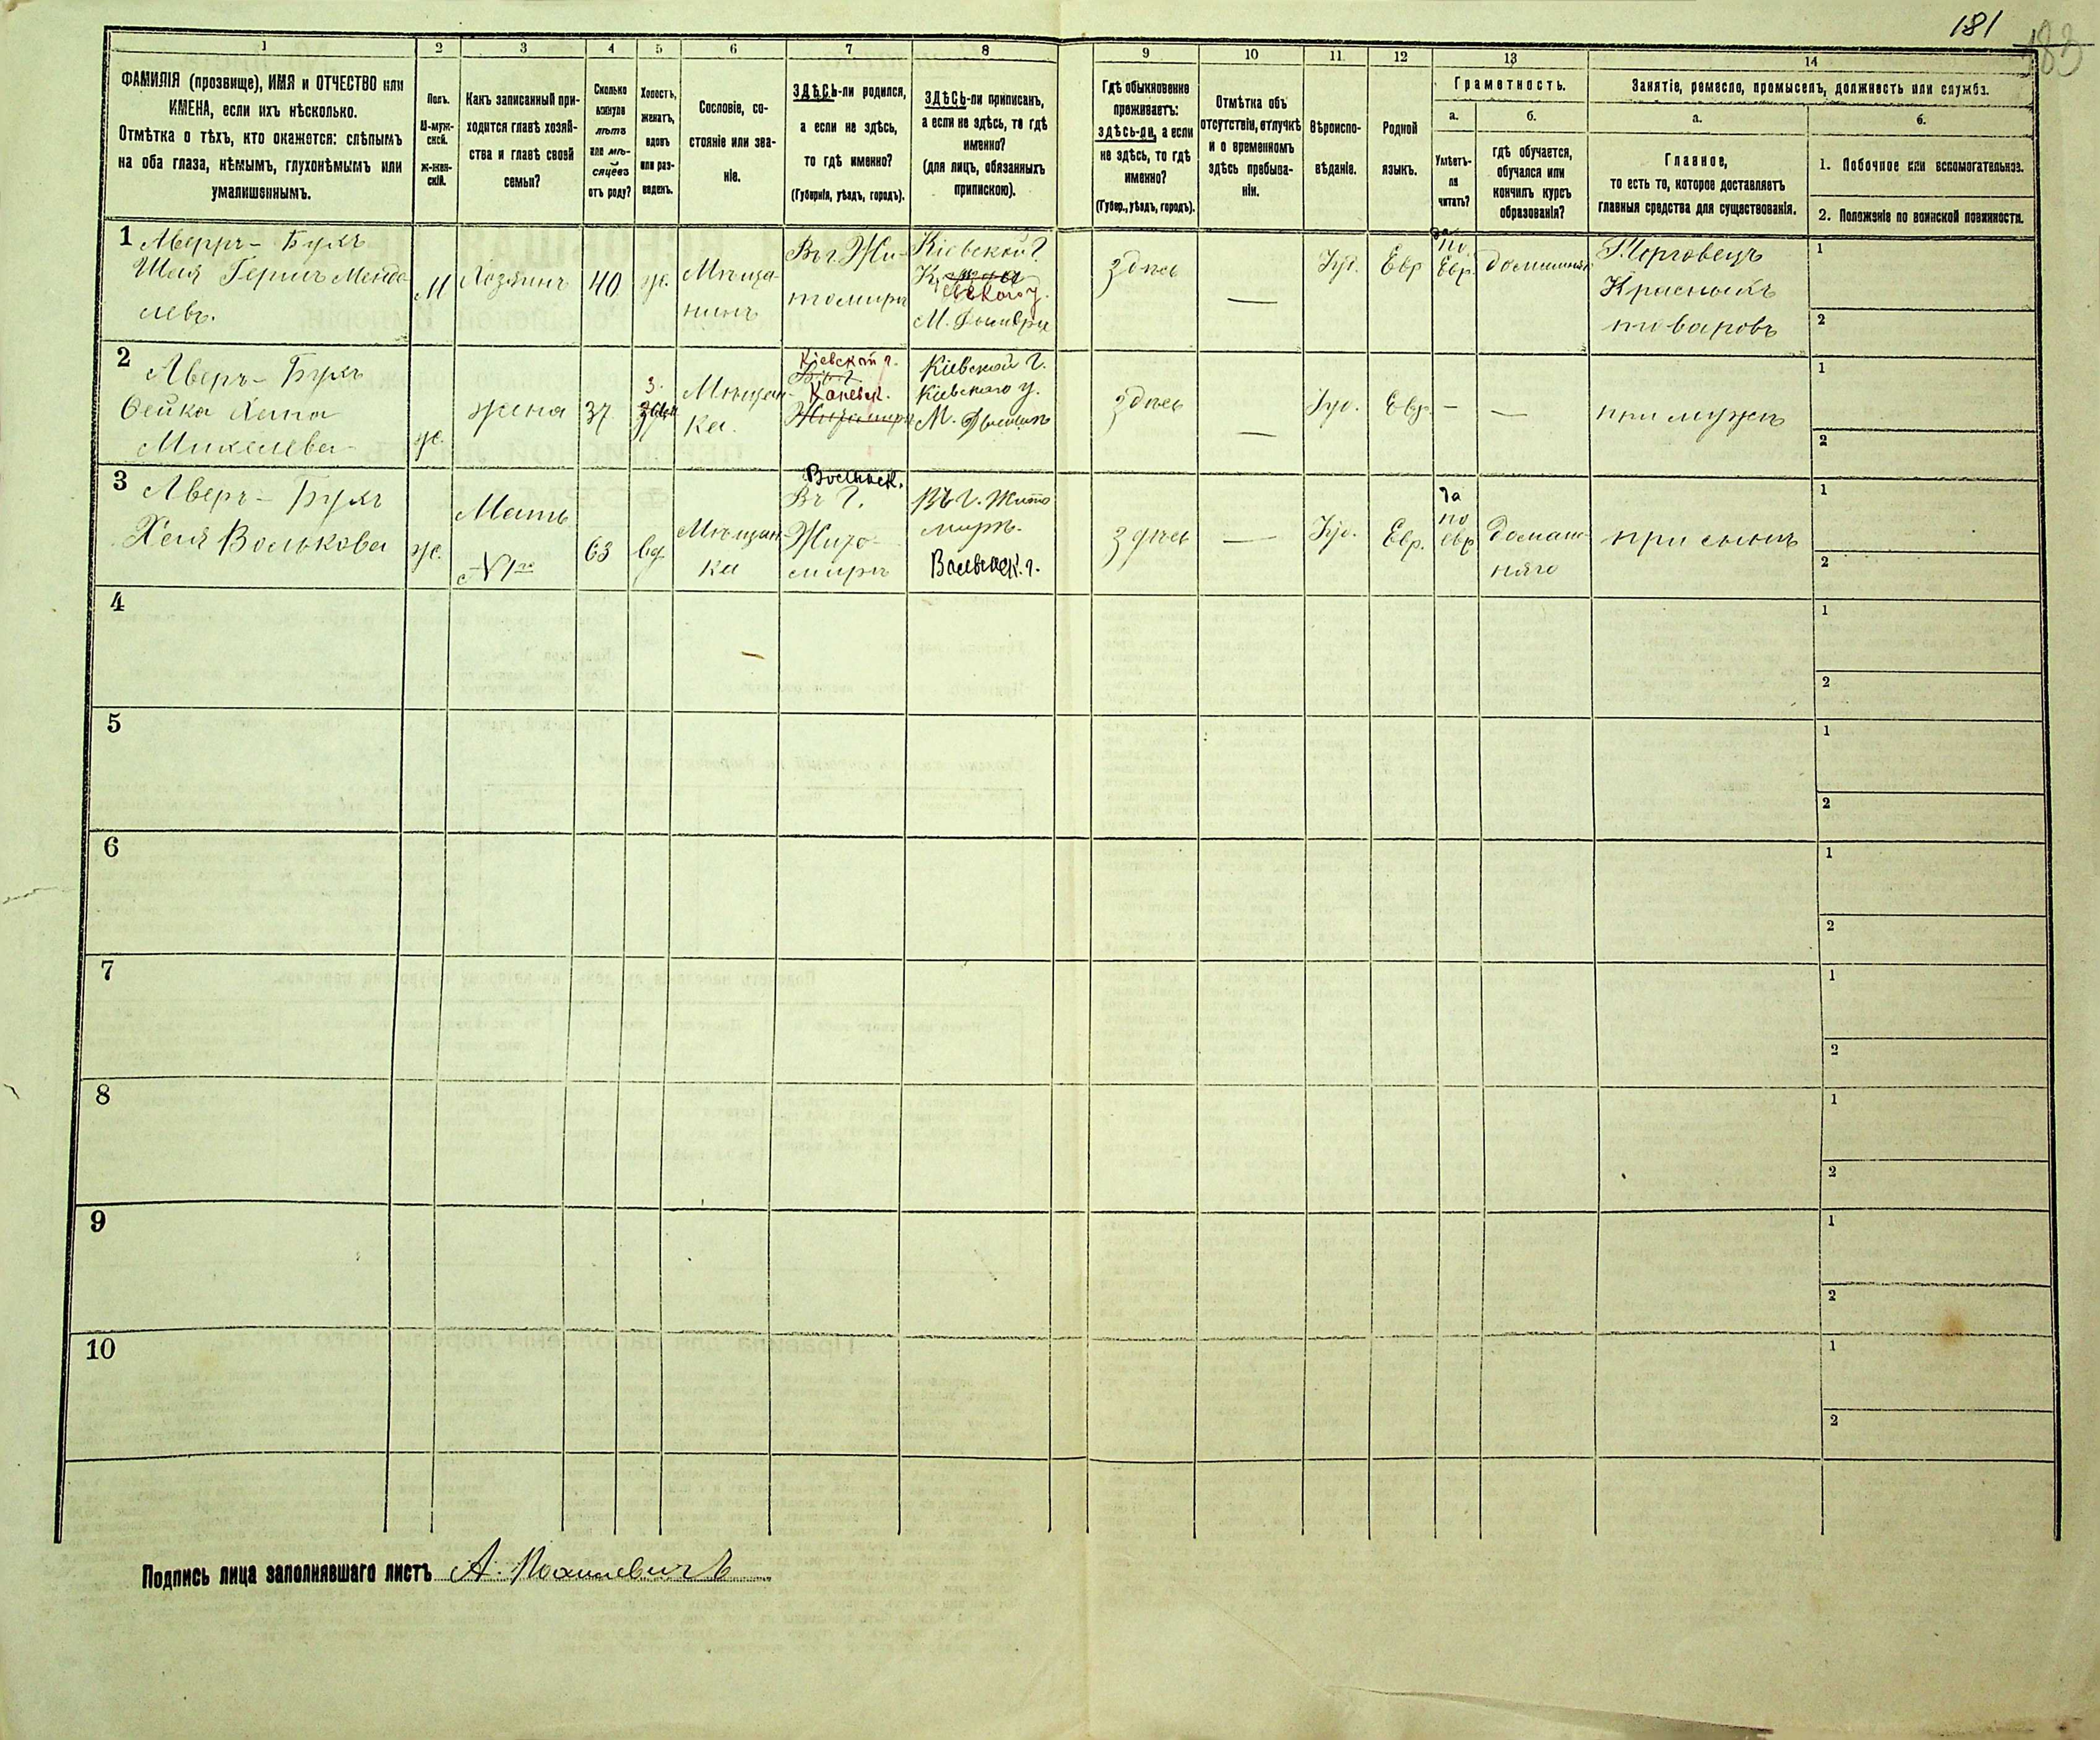 181
183
1
2
3
4
5
6
7
8
9
10
11
12
13
14
ФАМИЛІЯ (прозвище), ИМЯ и ОТЧЕСТВО или
ИМЕНА, если ихъ нѣсколько.
Отмѣтка о тѣхъ, кто окажется: слѣпымъ
на оба глаза, нѣмымъ, глухонѣмымъ или
умалишеннымъ.
Полъ.
М-муж-
ской.
Ж-жен-
скій.
Какъ записанный при-
ходится главѣ хозяй-
ства и главѣ своей
семьи?
Сколько
минуло
лѣтъ
или мѣ-
сяцевъ
отъ роду?
Холостъ,
женатъ,
вдовъ
или раз-
веденъ.
Сословіе, со-
стояніе или зва-
ніе.
ЗДѢСЬ-ли родился,
а если не здѣсь,
то гдѣ именно?
(Губернія, уѣздъ, городъ).
ЗДѢСЬ-ли приписанъ,
а если не здѣсь, то гдѣ
именно?
(для лицъ, обязанныхъ
припискою).
Гдѣ обыкновенно
проживаетъ:
здѣсь-ли, а если
не здѣсь, то гдѣ
именно?
(Губер., уѣздъ, городъ).
Отмѣтка объ
отсутствіи, отлучкѣ
и о временномъ
здѣсь пребыва-
ніи.
Вѣроиспо-
вѣданіе.
Родной
языкъ.
Грамотность.
а.
Умѣетъ-
ли
читать?
б.
гдѣ обучается,
обучался или
кончилъ курсъ
образованія?
Занятіе, ремесло, промыселъ, должность или служба.
а.
Главное,
то есть то, которое доставляетъ
главныя средства для существованія.
б.
1. Побочное или вспомогательное.
2. Положеніе по воинской повинности.
1
Аверръ-Бухъ
Шая Герш Менде
левъ.
М
Хозяинъ
40
ж.
Мѣща-
нинъ
Въ г. Жи-
томирѣ
Кіевской г.
М. Дымеръ
здѣсь
—
Іуд.
Евр
да
по
Евр.
домашняго
Торговецъ
Красныхъ
товаровъ
1
2
2
Аверъ-Бухъ
Бейка Хана
Михелева
ж.
жена
37.
з.
Мѣщан-
ка.
Кіевской г.
Каневск.
Кіевской г.
Кіевскаго у.
М. Дымеръ
здѣсь
—
Іуд.
Евр.
—
—
при мужѣ
1
2
3
Аверъ-Бухъ
Хая Волькова
ж.
Мать
№ 1го
63
вд.
Мѣщан
ка
Волынск.
Въ г.
Жито-
мирѣ
Въ г. Жито
мирѣ.
Волынск. г.
здѣсь
—
Іуд.
Евр.
да
по
евр
домаш-
няго
при сынѣ
1
2
4
1
2
5
1
2
6
1
2
7
1
2
8
1
2
9
1
2
10
1
2
Подпись лица заполнявшаго листъ А.